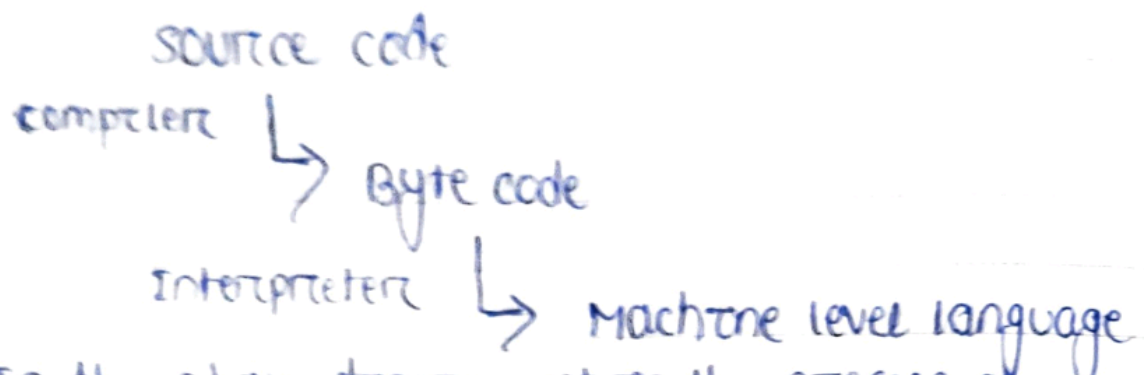 source code
compiler
Byte code
Interpreter
Machine level language